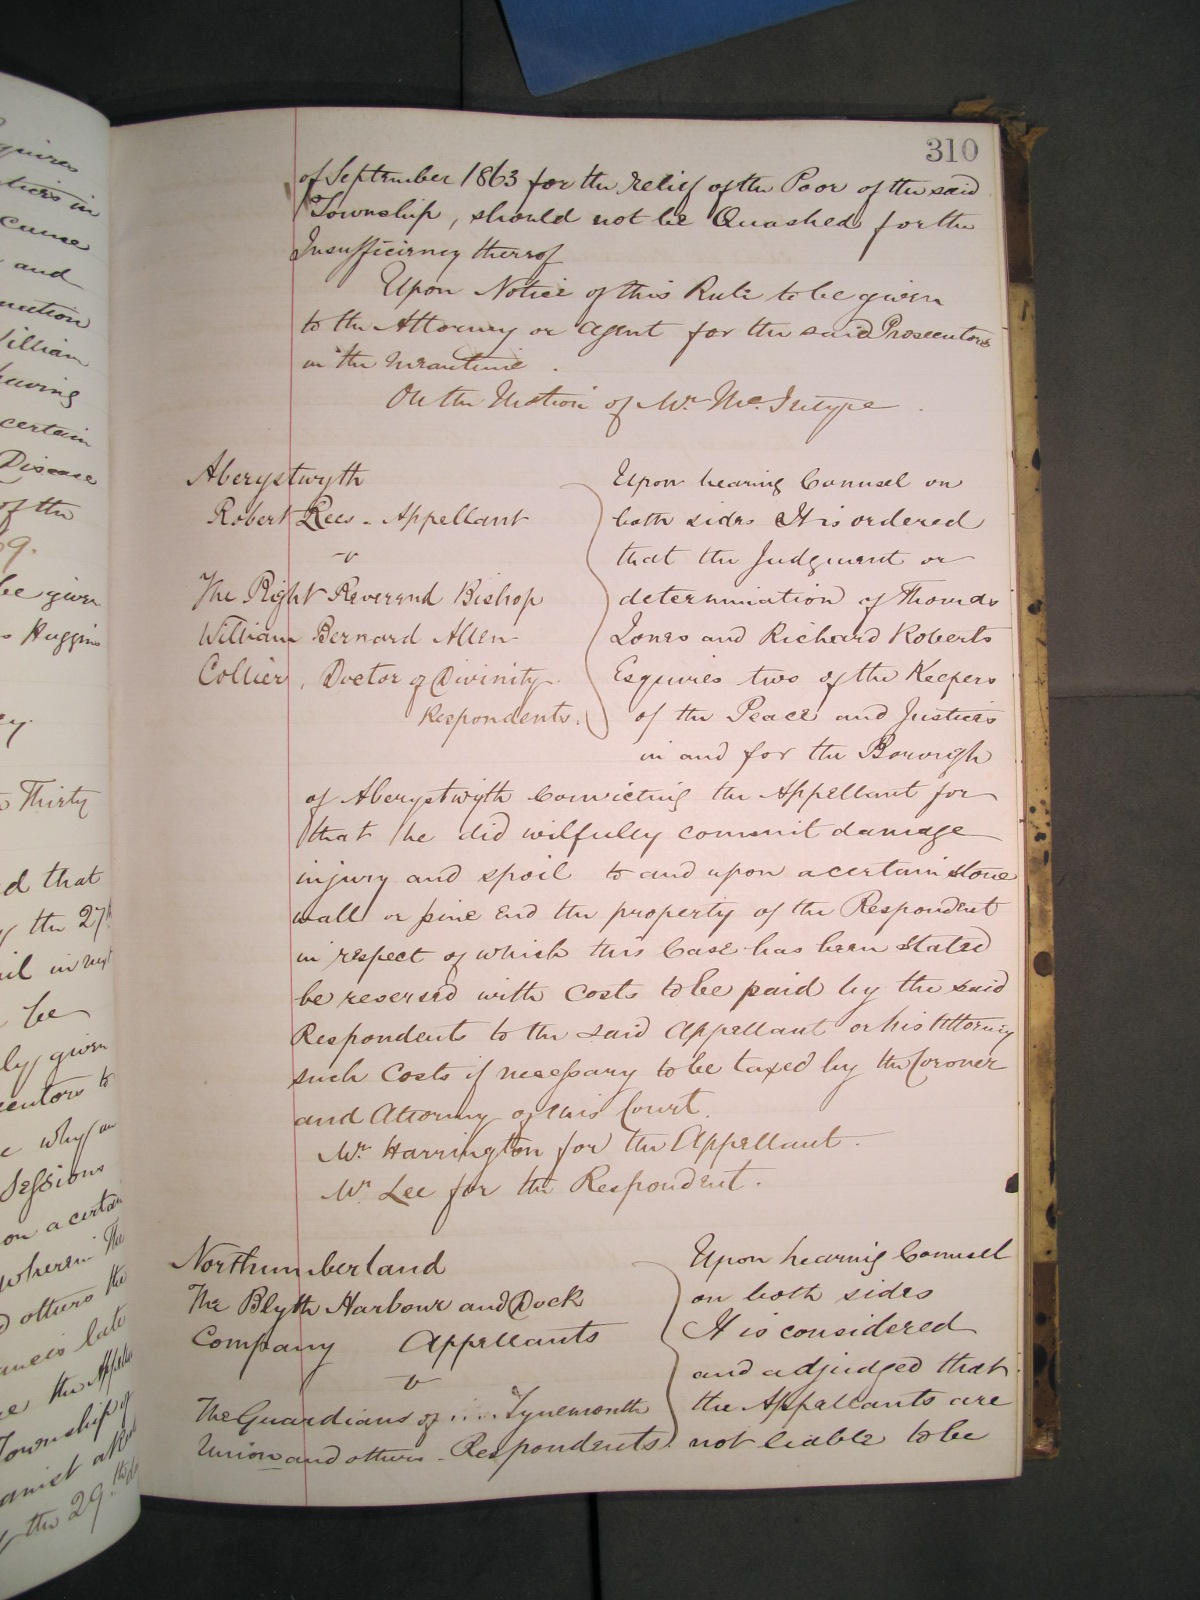 310
of September 1863 for the relief of the Poor of the said
Township, should not be Quashed for the
Insufficiency thereof
Upon Notice of this Rule to be given
to the Attorney or Agent for the said Prosecutors
in the meantime.
On the Motion of Mr. Mc. Intype.
Aberystwyth
Robert Rees - Appellant
v
The Right Reverend Bishop
William Bernard Allen
Collier, Doctor of Divinity
Respondents.
Upon hearing Counsel on
both sides It is ordered
that the Judgment or
determination of Thomas
Jones and Richard Roberts
Esquires two of the Keepers
of the Peace and Justices
in and for the Borough
of Aberystwyth Convicting the Appellant for
that he did wilfully commit damage
injury and spoil to and upon a certain stone
wall or pine end the property of the Respondent
in respect of which this Case has been stated
be reversed with Costs to be paid by the said
Respondents to the said Appellant or his Attorney
such Costs if necessary to be taxed by the Coroner
and Attorney of this Court.
Mr. Harrington for the Appellant.
Mr Lee for the Respondent.
Northumberland
The Blyth Harbour and Dock
Company Appellants
v
The Guardians of .... Tynemouth
Union and others - Respondents.
Upon hearing Counsel
on both sides
It is considered
and adjudged that
the Appellants are
not liable to be
quires
in
cause
and
William
having
certain
Disease
of the
be given
Huggins
Thirty
d that
the 27th
be
given
to
why an
Sessions
on a certain
wherein The
others the
late
the
Township of
the 29th